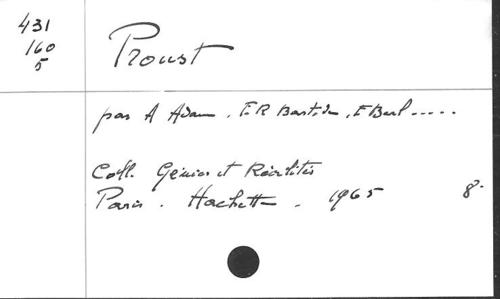 431
160
5
Proust
par A Adam, F.R Bastide, E Berl.....
Coll. Génies et Réalités
Paris. Hachette. 1965 8°